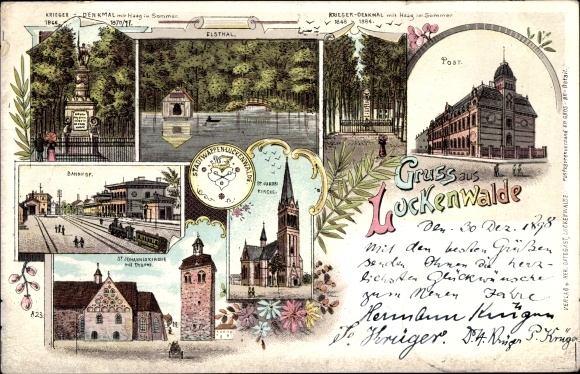 KRIEGER-DENKMAL mit Haag im Sommer.
1866 1870/71.
ELSTHAL.
KRIEGER-DENKMAL mit Haag im Sommer
1848 1864.
POST.
BAHNHOF.
STADTWAPPEN-LUCKENWALDE
ST. JAKOBI
KIRCHE.
ST. JOHANNISKIRCHE
mit THURM.
A23
Gruss aus
Luckenwalde
Den 30 Dez. 1898
Mit den besten Grüßen
senden Ihnen die herz-
lichsten Glückwünsche
zum Neuen Jahre
Hermann Krüger
Krüger. Krüger P. Krüger
VERLAG v. HER. LUCKENWALDE
Postkartenversand en gros - en detail.